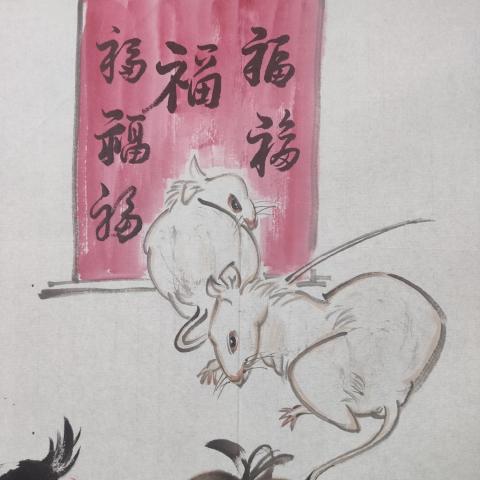 福 福 福
福 福
福